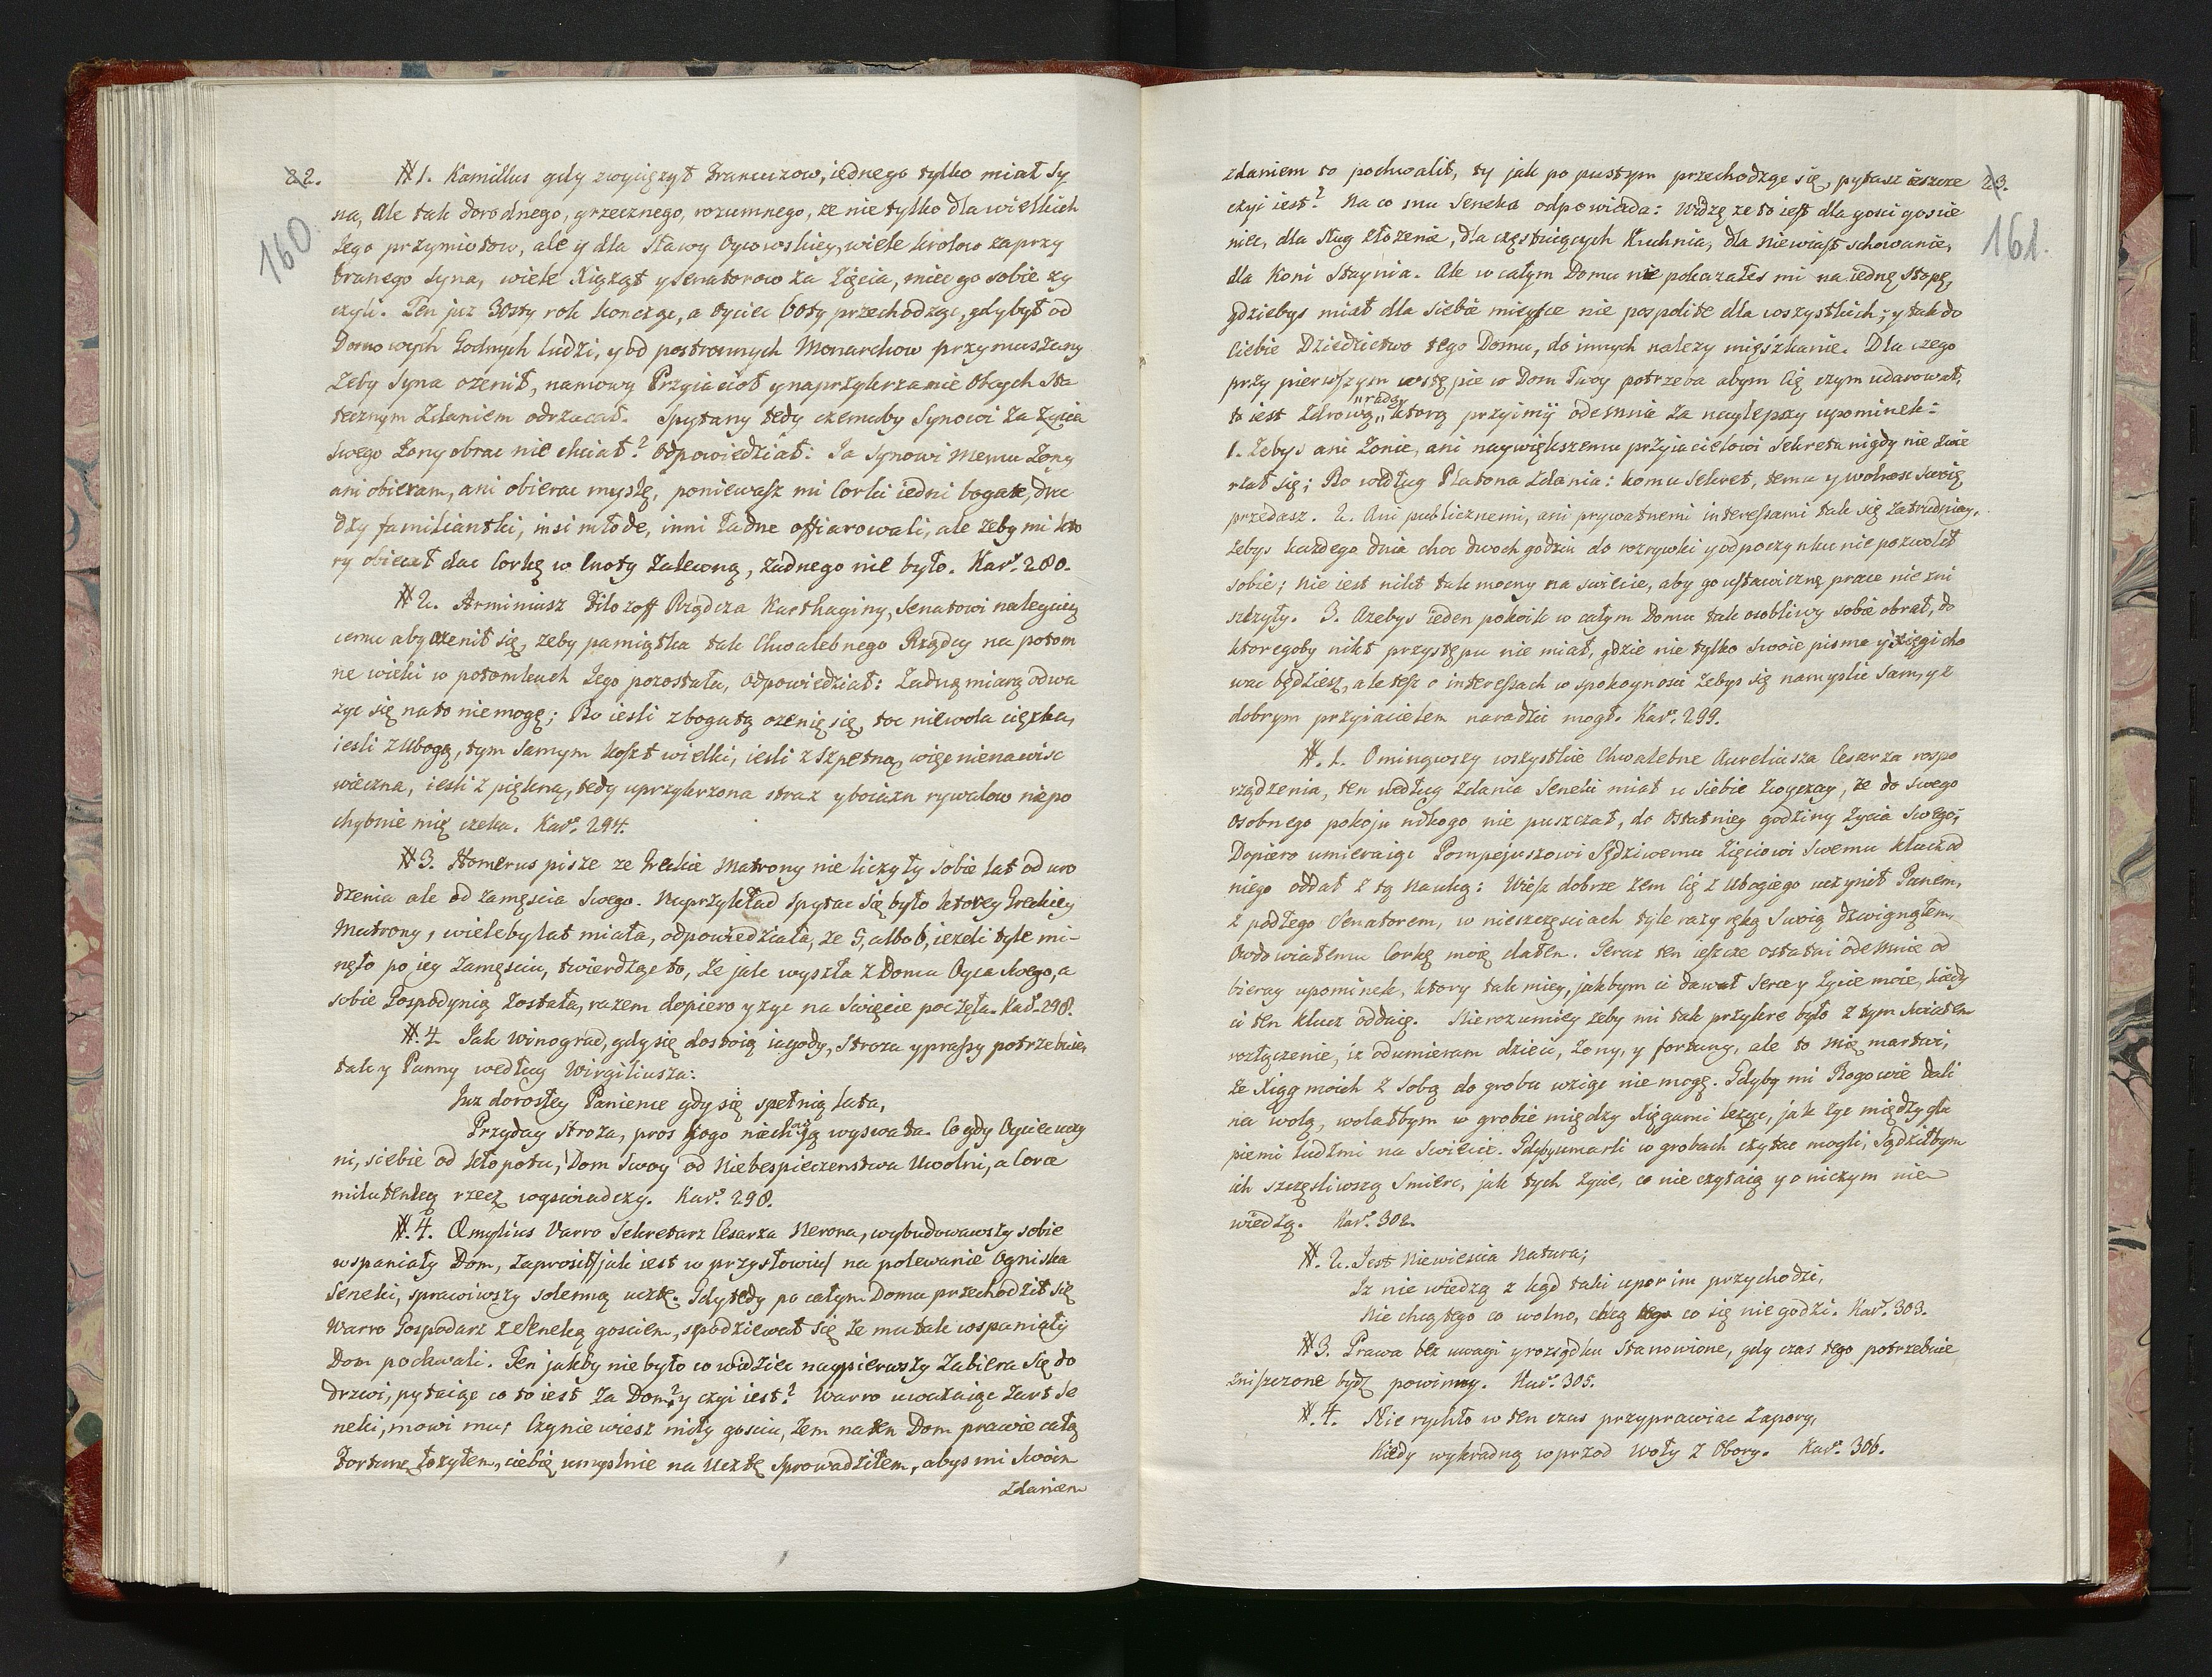 22.
160
# 1. Kamillus gdy zwyciężył Francuzow, iednego tylko miał Sy
na, Ale tak dorodnego, grzecznego, rozumnego, ze nie tylko dla wielkich
Jego przymiotow, ale y dla Sławy Oycowskiey, wiele krolow zaprzy
branego Syna, wiele Xiążąt y Senatorow za Zięcia, miec go sobie zy
czyli. Ten juz 30sty rok koncząc, a Oyciec 60ty przechodząc, gdy był od
Domowych Godnych ludzi, y od postronnych Monarchow przymuszany
Zeby Syna ozenił, namowy Przyiacioł y naprzykrzanie Obcych Sta
tecznym Zdaniem odrzucał. Spytany tedy czemuby Synowi za Zycia
Swego Zony obrac nie chciał? Odpowiedział: Ja Synowi Memu Zony
ani obieram, ani obierac myslę, poniewasz mi Corki iedni bogate, dru
dzy familiantki, insi młode, inni Ładne offiarowali, ale zeby mi kto
ry obiecał dac Corkę w Cnoty Zalewną, zadnego nie było. Kar.ª 280.
# 2. Arminiasz Filozoff Rządcza Karthaginy, Senatowi nalegaią
cemu aby ozenił się, zeby pamiątka tak Chwalebnego Rządcy na potom
ne wieki w potomkach Jego pozostała, odpowiedział: Zadną miarą odwa
zyc się na to nie mogę; Bo iesli z bogatą ozenię się, toc niewola cięzka,
iesli z Ubogą, tym samym koszt wielki, iesli z Szpetną, więc nienawisc
wieczna, iesli z piękną, tedy uprzykrzona straz y boiazn rywalow niepo
chybnie mię czeka. Kar.ª 294.
# 3. Homerus pisze ze Greckie Matrony nie liczyły sobie lat od uro
dzenia ale od zamęscia Swego. Naprzykład spytac się było ktorey Greckiey
Matrony, wieleby lat miała, odpowiedziała, ze 5, albo 6, iezeli tyle mi-
nęło po iey Zamęsciu, twierdząc to, ze jak wyszła z Domu Oyca swego, a
sobie Gospodynią Została, razem dopiero y zyc na Swięcie poczęła. Kar.ª 298.
#. 4. Jak Winograd, gdy się dostoią iagody, Stroza y prassy potrzebuie,
tak y Panny według Wirgiliusza:
Juz dorosłey Panience gdy się spełnią lata,
Przyday Stroza, pros kogo niech ią wyswata. Co gdy Oyciec uczy
ni, siebie od kłopotu, Dom Swoy od Niebespieczenstwa Uwolni, a Corce
milutenką rzecz wyswiadczy. Kar.ª 298.
#. 4. Æmylius Varro Sekretarz Cesarza Nerona, wybudowawszy sobie
wspaniały Dom, zaprosił /jak iest w przysłowiu/ na polewanie Ogniska
Seneki, sprawiwszy solenną ucztę. Gdy tedy po całym Domu przechodził się
Warro Gospodarz z Seneką gosciem, spodziewał się ze mu tak wspaniały
Dom pochwali. Ten jakby nie było co widziec naypierwszy Zabiera się do
drzwi, pytaiąc co to iest za Dom? y czyi iest? Warro uwazaiąc zart Se
neki, mowi mu: Czy nie wiesz miły gosciu, zem na ten Dom prawie całą
Fortunę łozyłem, ciebię umyslnie na Ucztę Sprowadziłem, abys mi Swoim
zdaniem
23.
161.
zdaniem to pochwalił, ty jak po pustym przechodząc się, pytasz ieszcze
czyi iest? Na co mu Seneka odpowiada: Widzę ze to iest dla gosci goscie
niec, dla Sług złozenie, dla częstuiących Kuchnia, dla niewiast schowanie,
dla Koni Staynia. Ale w całym Domu nie pokazałes mi na iednę Stopę,
gdziebys miał dla siebie mieysce nie pospolite dla wszystkich; y tak do
Ciebie Dziedzictwo tego Domu, do innych nalezy mięszkanie. Dla czego
przy pierwszym wstępie w Dom Twoy potrzeba abym Cię czym udarował,
to iest Zdrową „radą„ ktorą przyimij odemnie za naylepszy upominek:
1. Zebys ani Zonie, ani naywiększemu przyiacielowi Sekretu nigdy nie zwie
rzał się; Bo według Platona zdania: komu Sekret, temu y wolnosc Swoią
przedasz. 2. Ani publicznemi, ani prywatnemi interessami tak się zatrudniay,
zebys kazdego dnia choc dwoch godzin do rozrywki y odpoczynku nie pozwolił
sobie; nie iest nikt tak mocny na swiecie, aby go ustawiczne prace nie zni
szczyły. 3. Azebys ieden pokoik w całym Domu tak osobliwy sobie obrał, do
ktoregoby nikt przystępu nie miał, gdzie nie tylko swoie pisma y xięgi cho
wac będziesz, ale tesz o interessach w spokoynosci zebys się namyslic sam, y z
dobrym przyiacielem naradzic mogł. Kar.ª 299.
#. 1. Ominąwszy wszystkie Chwalebne Aureliusza Cesarza rospo
rządzenia, ten według zdania Seneki miał u siebie zwyczay, ze do swego
osobnego pokoju nikogo nie puszczał, do Ostatniey godziny Zycia Swego;
Dopiero umieraiąc Pompejuszowi Sędziwemu Zięciowi Swemu klucz od
niego oddał z tą Nauką: Wiesz dobrze zem Cię z Ubogiego uczynił Panem,
z podłego Senatorem, w nieszczęsciach tyle razy ręką Swoią dzwignąłem,
Owdowiałemu Corkę moię dałem. Teraz ten ieszcze ostatni odemnie od
bieray upominek, ktory tak miey, jakbym ci dawał Serce y Zycie moie, kiedy
ci ten klucz oddaię. Nierozumiey zeby mi tak przykre było z tym Swiatem
rozłączenie, iz odumieram dzieci, Zony, y fortuny, ale to mię martwi,
ze Xiąg moich z Sobą do grobu wziąc nie mogę. Gdyby mi Bogowie dali
na wolą, wolałbym w grobie między Xięgami lezec, jak zyc między głu
piemi ludzmi na Swiecie. Gdyby umarli w grobach czytac mogli, Sądziłbym
ich szczęsliwszą Smierc, jak tych Zycie, co nie czytaią y o niczym nie
wiedzą. Kar.ª 302.
#. 2. Jest Niewiescia Natura;
Iz nie wiedzą z kąd taki upor im przychodzi,
Nie chcą tego co wolno, chcą tego co się nie godzi. Kar.ª 303.
# 3. Prawa bez uwagi y rozsądku Stanowione, gdy czas tego potrzebuie
zniszczone bydz powinny. Kar.ª 305.
#. 4. Nie rychło w ten czas przyprawiac Zapory,
Kiedy wykradną wprzod Woły z Obory. Kar.ª 306.